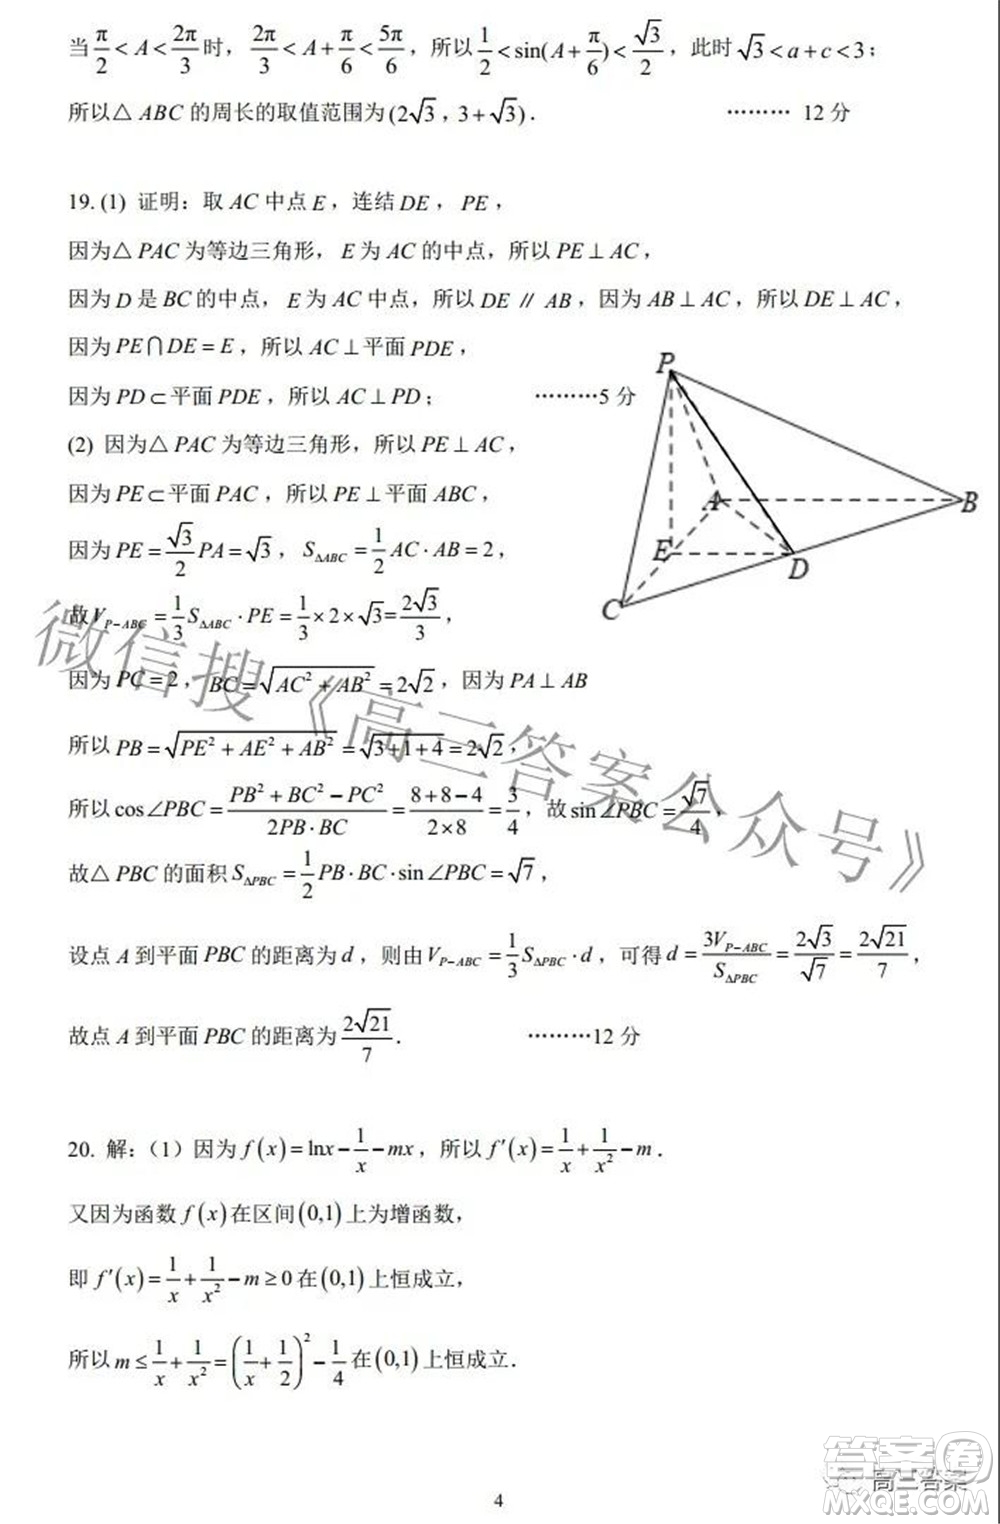 当 π/2 < A < 2π/3 时，2π/3 < A + π/6 < 5π/6，所以 1/2 < sin(A + π/6) < √3/2，此时 √3 < a + c < 3；
所以△ABC 的周长的取值范围为 (2√3，3+√3)． ……… 12 分
19. (1) 证明：取 AC 中点 E，连结 DE，PE，
因为△PAC 为等边三角形，E 为 AC 的中点，所以 PE ⊥ AC，
因为 D 是 BC 的中点，E 为 AC 中点，所以 DE ∥ AB，因为 AB ⊥ AC，所以 DE ⊥ AC，
因为 PE∩DE = E，所以 AC ⊥ 平面 PDE，
因为 PD ⊂ 平面 PDE，所以 AC ⊥ PD； ………5 分
(2) 因为△PAC 为等边三角形，所以 PE ⊥ AC，
因为 PE ⊂ 平面 PAC，所以 PE ⊥ 平面 ABC，
因为 PE = √3/2 PA = √3，S△ABC = 1/2 AC · AB = 2，
故 V_{P−ABC} = 1/3 S△ABC · PE = 1/3 × 2 × √3 = 2√3/3，
因为 PC = 2，BC = √(AC² + AB²) = 2√2，因为 PA ⊥ AB
所以 PB = √(PE² + AE² + AB²) = √(3+1+4) = 2√2，
所以 cos∠PBC = (PB² + BC² − PC²)/(2PB · BC) = (8+8−4)/(2×8) = 3/4，故 sin∠PBC = √7/4，
故△PBC 的面积 S△PBC = 1/2 PB · BC · sin∠PBC = √7，
设点 A 到平面 PBC 的距离为 d，则由 V_{P−ABC} = 1/3 S△PBC · d，可得 d = 3V_{P−ABC}/S△PBC = 2√3/√7 = 2√21/7，
故点 A 到平面 PBC 的距离为 2√21/7． ………12 分
P
A
B
E
D
C
20. 解：（1）因为 f(x) = lnx − 1/x − mx，所以 f′(x) = 1/x + 1/x² − m．
又因为函数 f(x) 在区间 (0,1) 上为增函数，
即 f′(x) = 1/x + 1/x² − m ≥ 0 在 (0,1) 上恒成立，
所以 m ≤ 1/x + 1/x² = (1/x + 1/2)² − 1/4 在 (0,1) 上恒成立．
4
微信搜《高三答案公众号》
高三答案
答案圈
MXQE.COM